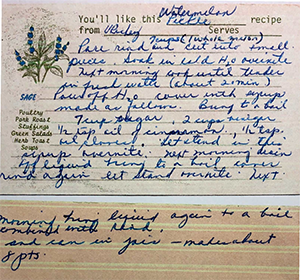 Watermelon
You'll like this Pickle recipe
from Serves
(whole melon)
Pare rind and cut into small
pieces. Soak in cold H2O overnite
Next morning cook until tender
in fresh water (about 20 min)
Drain off H2O cover with syrup
SAGE made as follows. Bring to a boil
Poultry 7 cup sugar, 2 cups vinegar
Pork Roast
Stuffings 1/2 tsp oil of cinnamon, 1/2 tsp
Green Salads
Herb Toast oil cloves, let stand in this
Soups syrup overnite. Next morning drain
off liquid to a boil, cover
rind again let stand overnite. Next
morning bring liquid again to a boil
combined with rind,
and can in jars - makes about
8 pts.